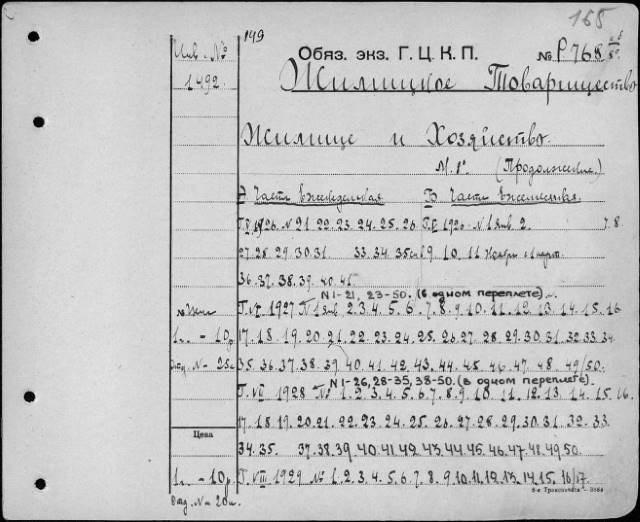 165
149
Инв. №
1492.
Обяз. экз. Г. Ц. К. П.
№ Р768
Жилищное Товарищество
Жилище и Хозяйство.
М. Г°. (Продолжение.)
А Часть Еженедельная Б Часть Ежемесячная
Г. V 1926. № 21. 22. 23. 24. 25. 26 Г. 1926 № 1 янв. 2. 7. 8.
27. 28. 29. 30. 31 33. 34. 35 9. 10. 11
36. 37. 38. 39. 40. 41
N 1-21, 23-50. (в одном переплете).
Г. VI. 1927 № 1 янв 2. 3. 4. 5. 6. 7. 8. 9. 10. 11. 12. 13. 14. 15. 16
1.. - 10р
17. 18. 19. 20. 21. 22. 23. 24. 25. 26. 27. 28. 29. 30. 31. 32. 33. 34.
Отд. № - 25к
35. 36. 37. 38. 39. 40. 41. 42. 43. 44. 45. 46. 47. 48. 49/50.
N 1-26, 28-35, 38-50. (в одном переплете).
Г. VII 1928 № 1. 2. 3. 4. 5. 6. 7. 8. 9. 10. 11. 12. 13. 14. 15. 16.
17. 18. 19. 20. 21. 22. 23. 24. 25. 26. 27. 28. 29. 30. 31. 32. 33
Цена
34. 35. 37. 38. 39. 40. 41. 42. 43. 44. 45. 46. 47. 48. 49. 50.
1.. - 10р.
Г. VIII 1929 № 1. 2. 3. 4. 5. 6. 7. 8. 9. 10. 11. 12. 13. 14. 15. 16/17
Отд. № - 20к.